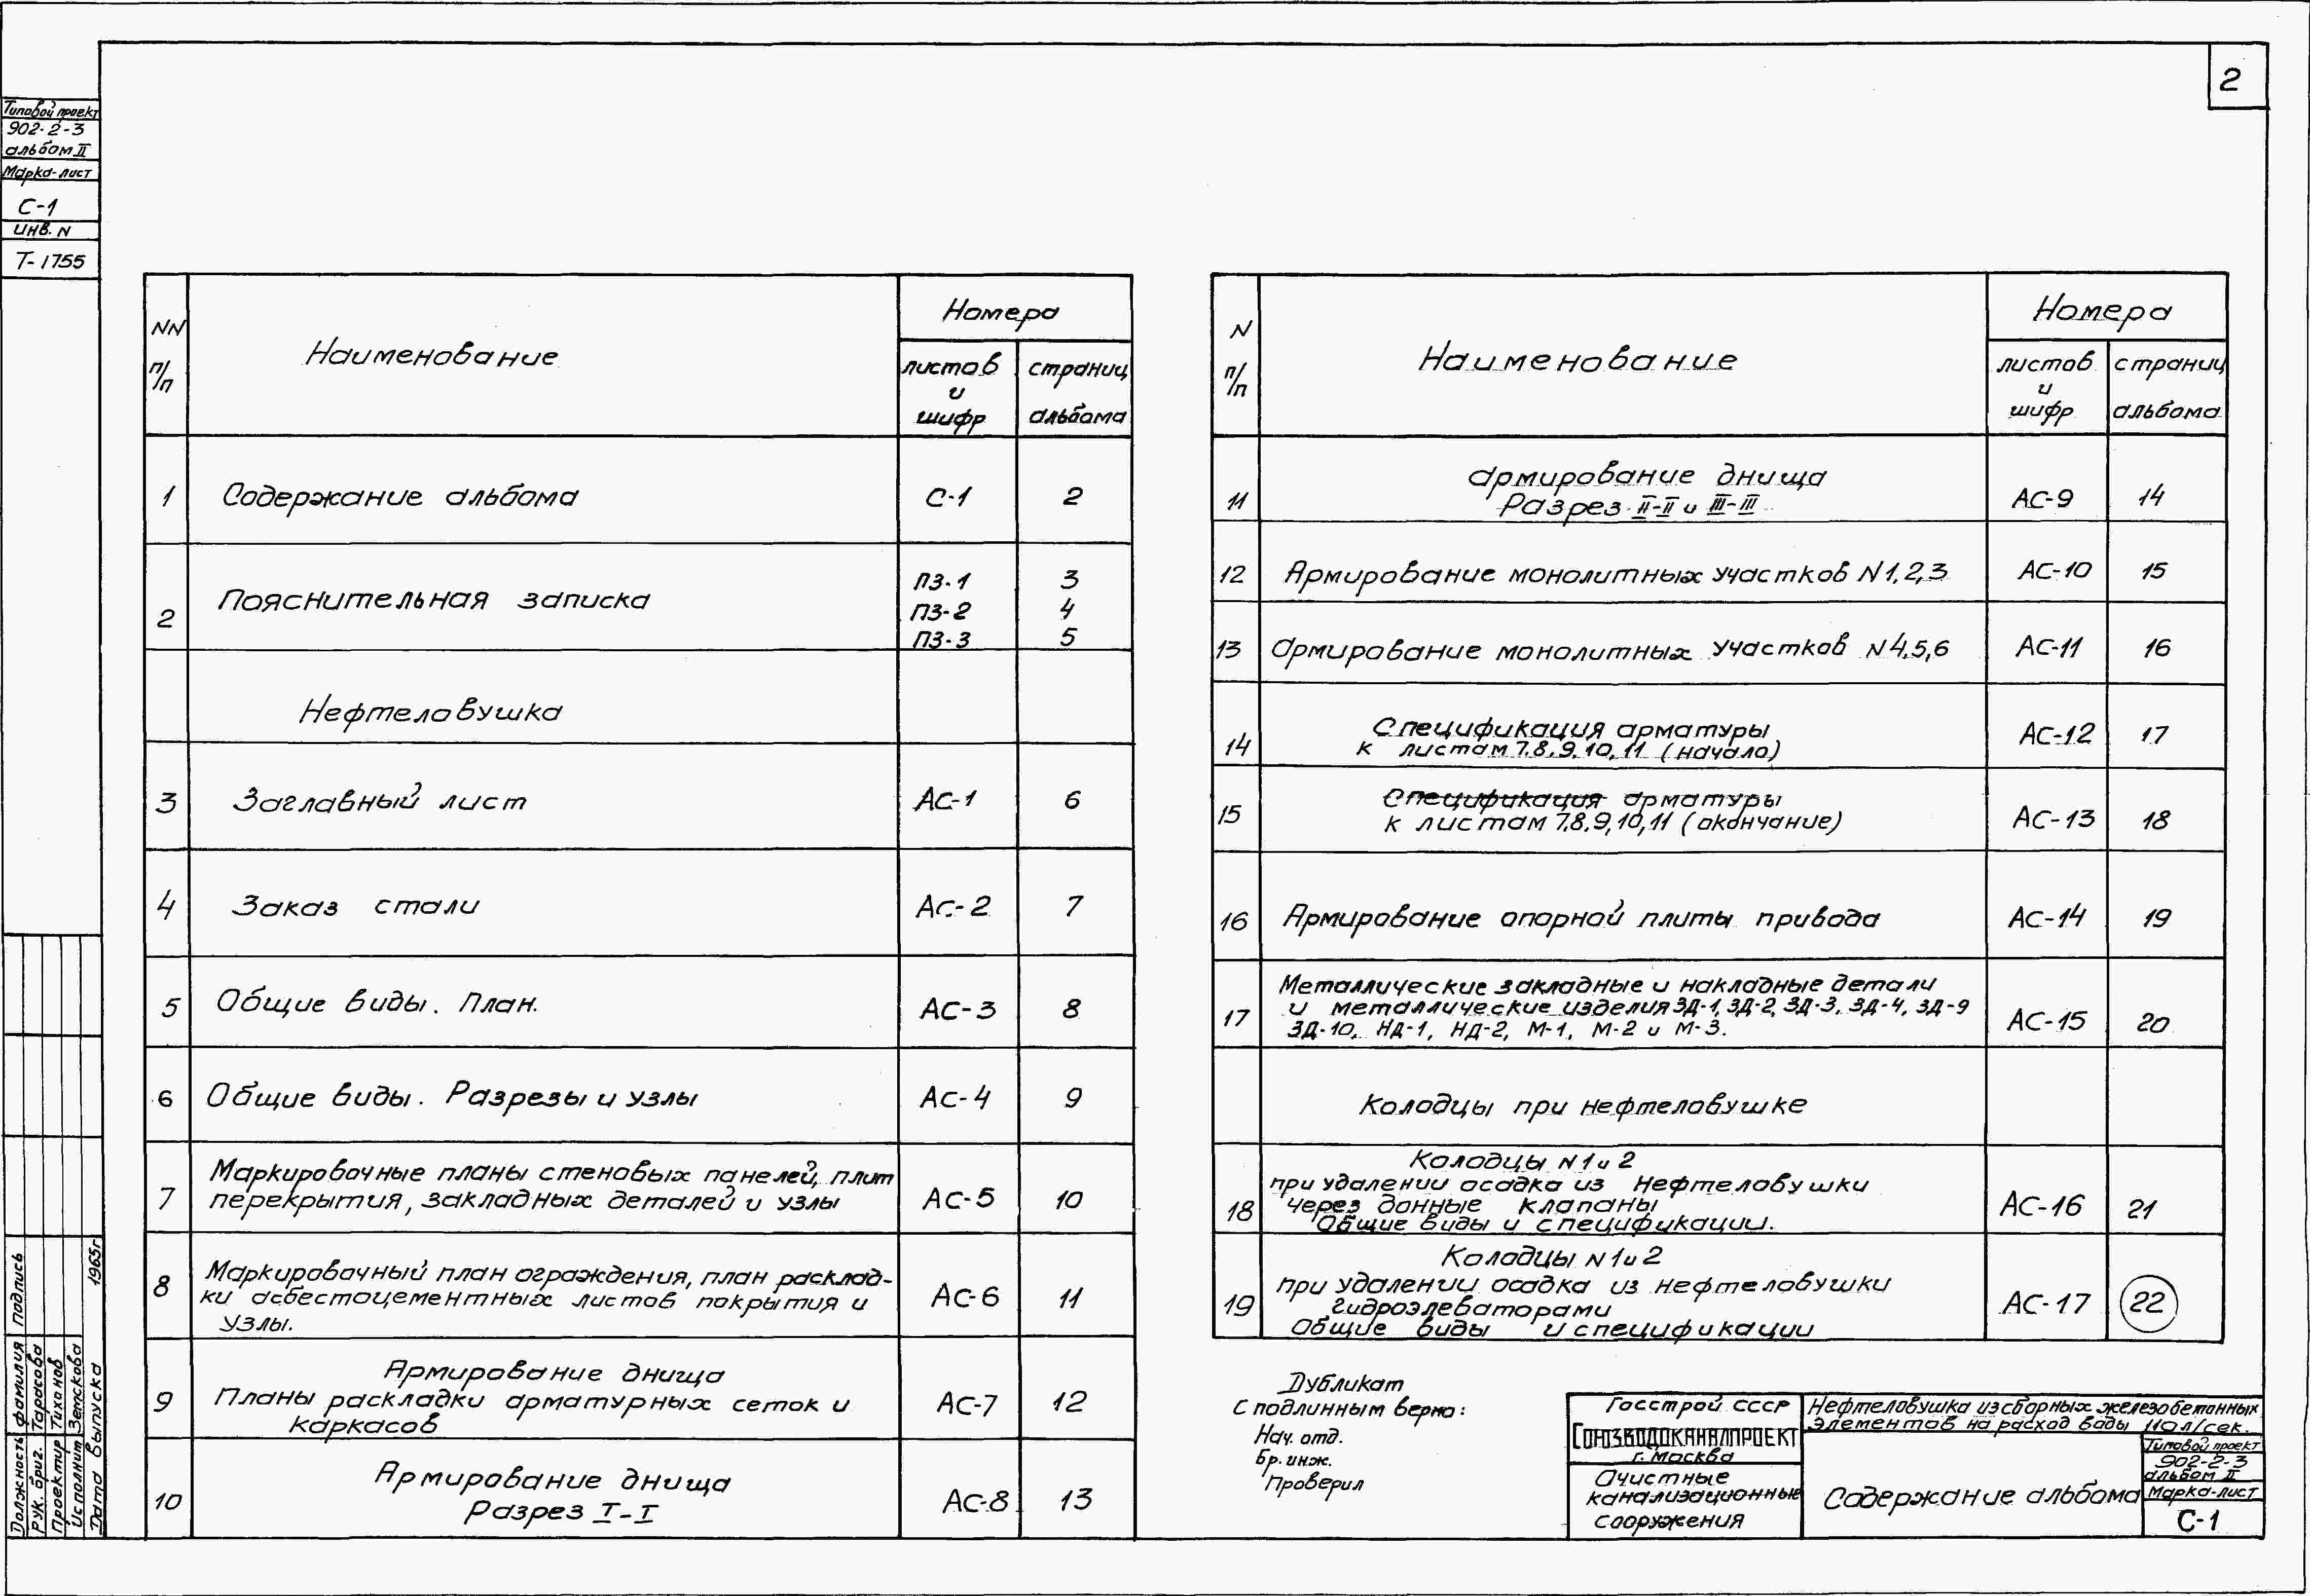 2
Типовой проект
902-2-3
альбом II
Марка-лист
С-1
Инв. N
Т-1755
NN п/п
Наименование
Номера
листов и шифр
страниц альбома
1 Содержание альбома С-1 2
2 Пояснительная записка
ПЗ-1 3
ПЗ-2 4
ПЗ-3 5
Нефтеловушка
3 Заглавный лист АС-1 6
4 Заказ стали АС-2 7
5 Общие виды. План. АС-3 8
6 Общие виды. Разрезы и узлы АС-4 9
Маркировочные планы стеновых панелей, плит
7 перекрытия, закладных деталей и узлы АС-5 10
Маркировочный план ограждения, план расклад-
8 ки асбестоцементных листов покрытия и АС-6 11
узлы.
Армирование днища
9 Планы раскладки арматурных сеток и АС-7 12
каркасов
Армирование днища
10 Разрез I-I АС-8 13
N п/п
Наименование
Номера
листов и шифр
страниц альбома
Армирование днища
11 Разрез II-II и III-III АС-9 14
12 Армирование монолитных участков N1,2,3 АС-10 15
13 Армирование монолитных участков N4,5,6 АС-11 16
Спецификация арматуры
14 к листам 7,8,9,10,11 (начало) АС-12 17
Спецификация арматуры
15 к листам 7,8,9,10,11 (окончание) АС-13 18
16 Армирование опорной плиты привода АС-14 19
Металлические закладные и накладные детали
17 и металлические изделия ЗД-1, ЗД-2, ЗД-3, ЗД-4, ЗД-9 АС-15 20
ЗД-10, НД-1, НД-2, М-1, М-2 и М-3.
Колодцы при нефтеловушке
Колодцы N1 и 2
при удалении осадка из Нефтеловушки
18 через донные клапаны АС-16 21
Общие виды и спецификации.
Колодцы N1 и 2
при удалении осадка из нефтеловушки
19 гидроэлеваторами АС-17 22
Общие виды и спецификации
Дубликат
С подлинным верно:
Нач. отд.
Бр. инж.
Проверил
Госстрой СССР
СОЮЗВОДОКАНАЛПРОЕКТ
г. Москва
Очистные
канализационные
сооружения
Нефтеловушка из сборных железобетонных
элементов на расход воды 110 л/сек.
Содержание альбома
Типовой проект
902-2-3
альбом II
Марка-лист
С-1
Должность фамилия подпись
Рук. бриг. Тарасова
Проектир Тиханов
Исполнит Земскова
Дата выпуска 1965г.